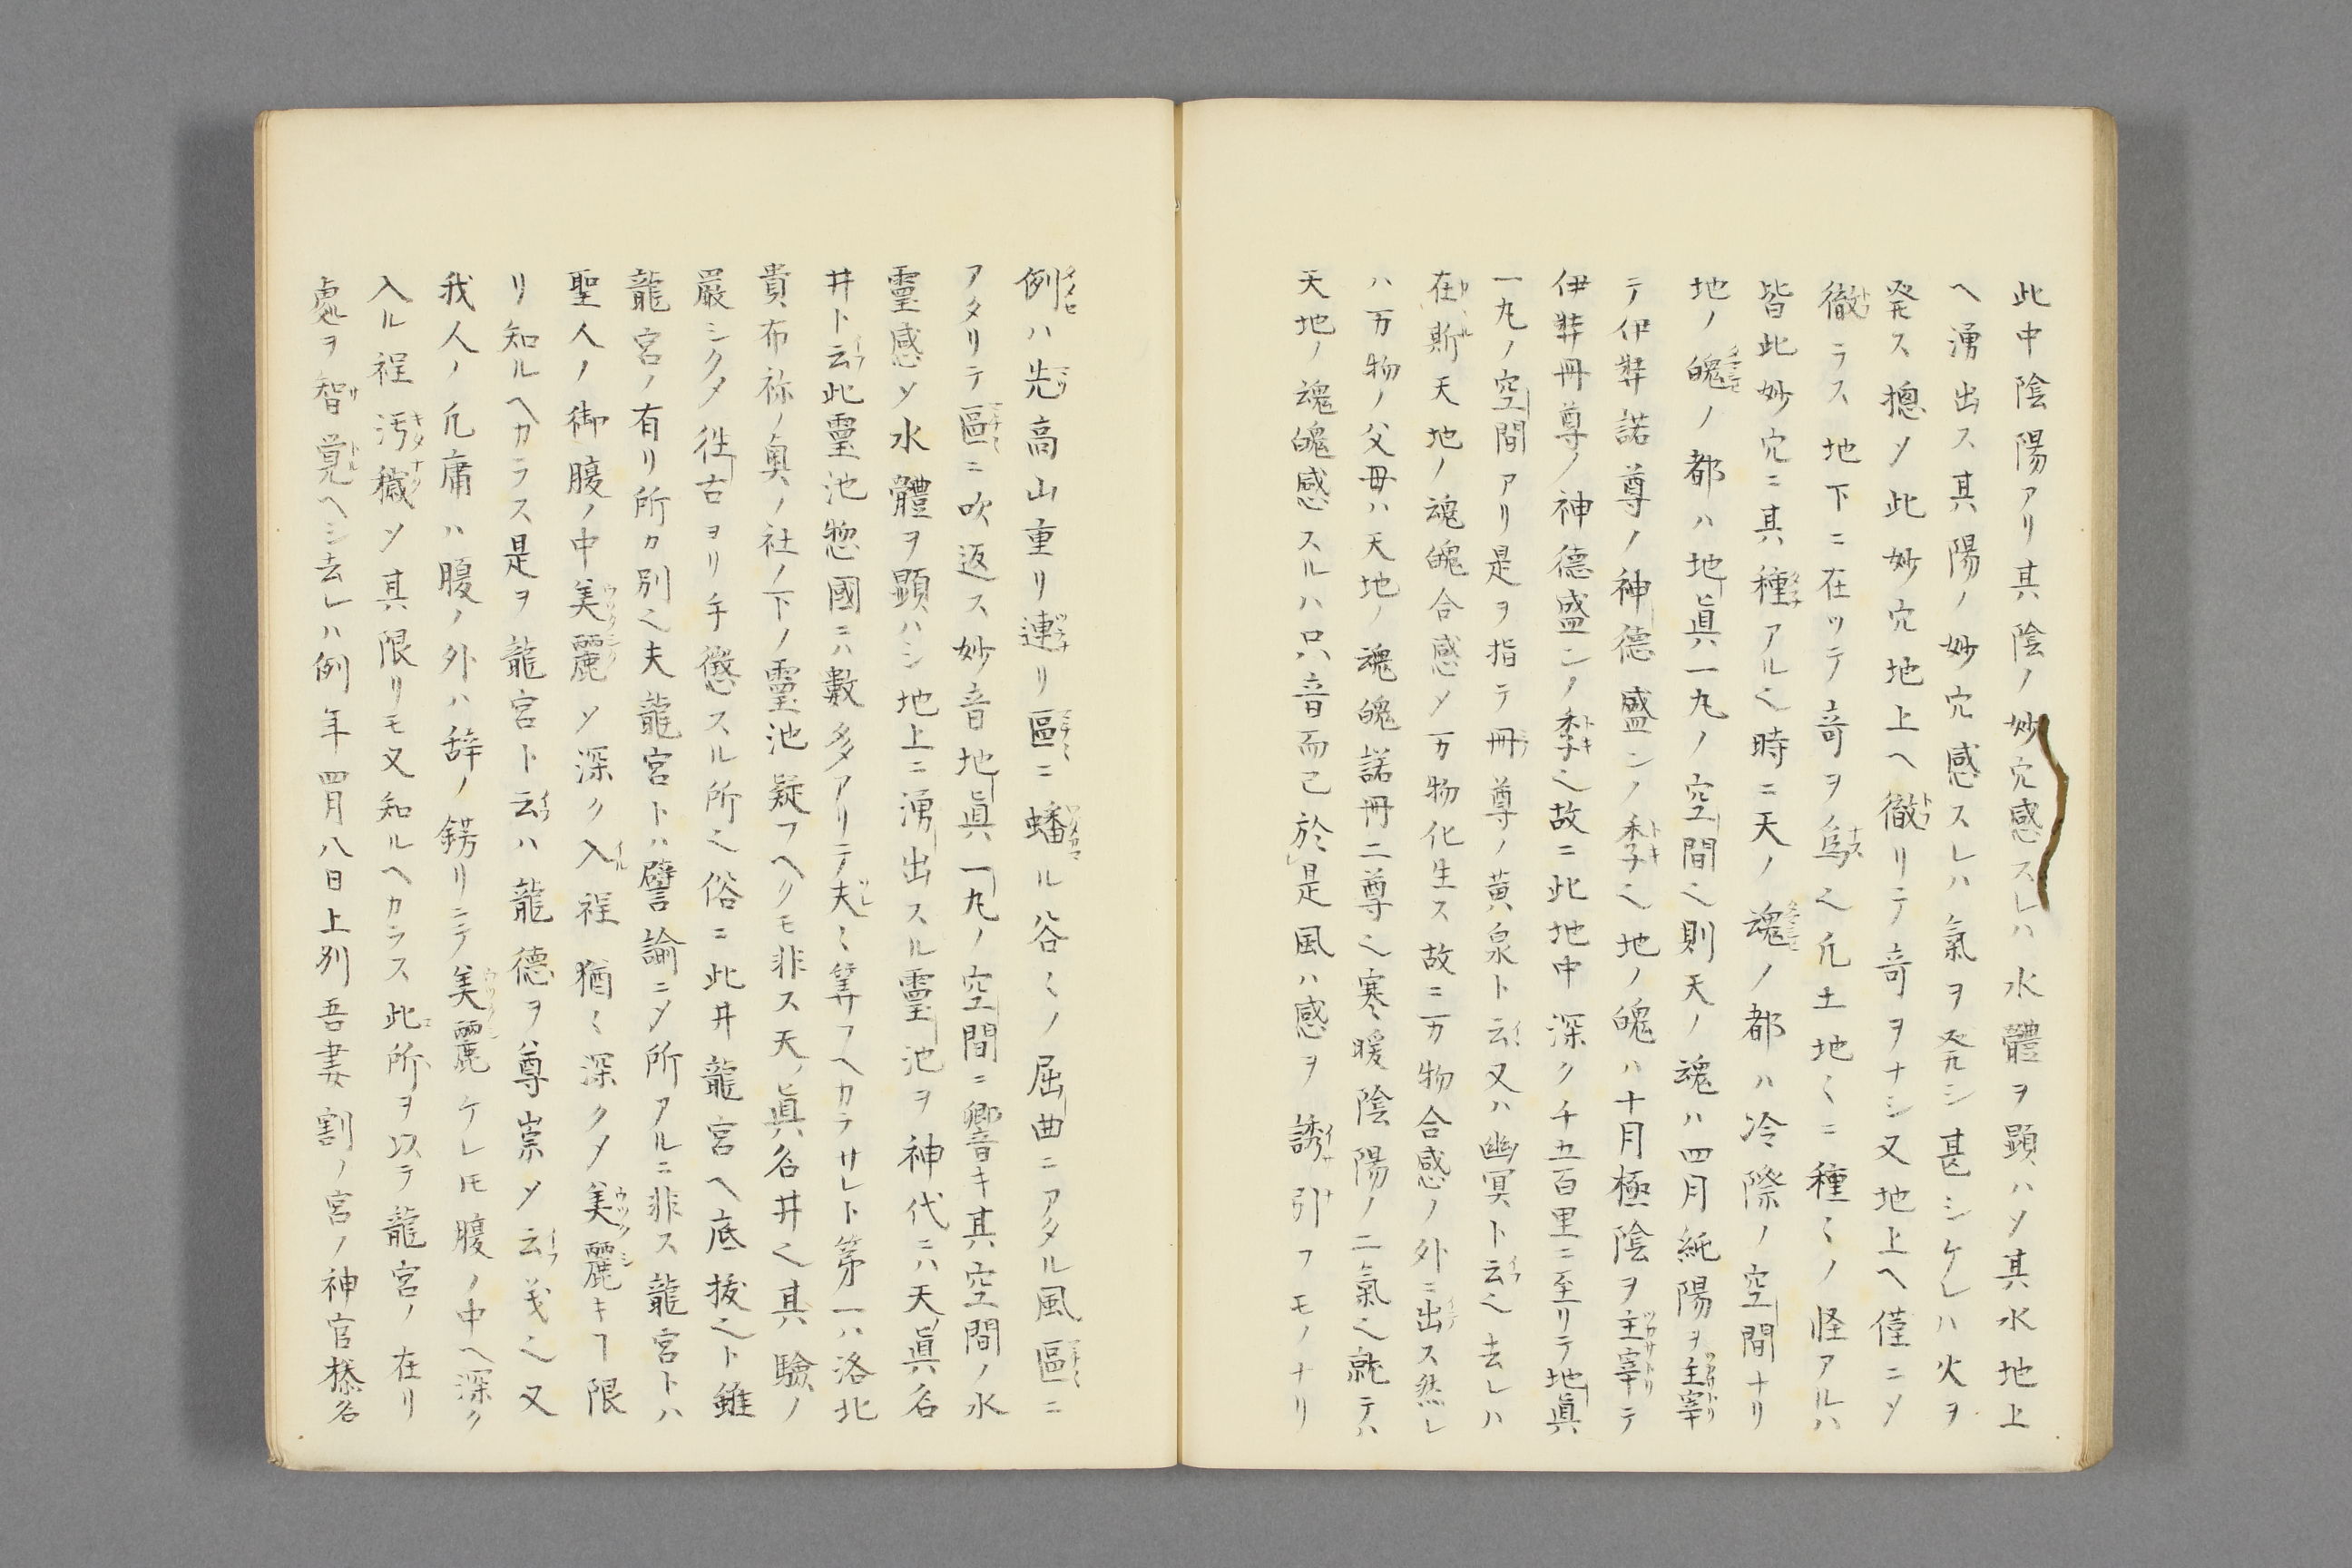 此中陰陽アリ其陰ノ妙穴感スレハ水體ヲ顕ハソ其水地上
ヘ湧出ス其陽ノ妙穴感スレハ氣ヲ発シ甚シケレハ火ヲ
発ス摠〆此妙穴地上ヘ徹リテ竒ヲナシ又地上ヘ僅ニ〆
徹ラス地下ニ在ッテ竒ヲ爲也凢土地〻ニ種〻ノ怪アルハ
皆此妙穴ニ其種アル也時ニ天ノ魂ノ都ハ冷際ノ空間ナリ
地ノ魄ノ都ハ地眞一九ノ空間也則天ノ魂ハ四月純陽ヲ主宰
テ伊弉諾尊ノ神德盛ンノ季也地ノ魄ハ十月極陰ヲ主宰テ
伊弉冊尊ノ神德盛ンノ季也故ニ此地中深ク千五百里ニ至リテ地眞
一九ノ空間アリ是ヲ指テ冊尊ノ黄泉ト云又ハ幽冥ト云也去レハ
在斯天地ノ魂魄合感〆万物化生ス故ニ万物合感ノ外ニ出ス然レ
ハ万物ノ父母ハ天地ノ魂魄諾冊二尊也寒暖陰陽ノ二氣也就テハ
天地ノ魂魄感スルハ只音而已於是風ハ感ヲ誘引フモノナリ
例ハ先高山重リ連リ區ニ蟠ル谷〻ノ屈曲ニアタル風區ニ
アタリテ區ニ吹返ス妙音地眞一九ノ空間ニ響キ其空間ノ水
靈感〆水體ヲ顕ハシ地上ニ湧出スル靈池ヲ神代ニハ天眞名
井ト云此靈池惣國ニハ數多アリテ夫〻筭フヘカラサレト第一ハ洛北
貴布祢ノ奥ノ社ノ下ノ靈池疑フヘクモ非ス天ノ眞名井也其驗ノ
嚴シク〆徃古ヨリ手懲スル所也俗ニ此井龍宮ヘ底拔也ト雖
龍宮ノ有リ所カ別也夫龍宮トハ譬諭ニ〆所アルニ非ス龍宮トハ
聖人ノ御腹ノ中美麗〆深ク入程猶〻深ク〆美麗キヿ限
リ知ルヘカラス是ヲ龍宮ト云ハ龍德ヲ尊崇〆云義也又
我人ノ凢庸ハ腹ノ外ハ辞ノ錺リニテ美麗ケレ𪜈腹ノ中ヘ深ク
入ル程汚穢〆其限リモ又知ルヘカラス此所ヲ以テ龍宮ノ在リ
處ヲ智覓ヘシ去レハ例年四月八日上別吾妻割ノ宮ノ神官榛名